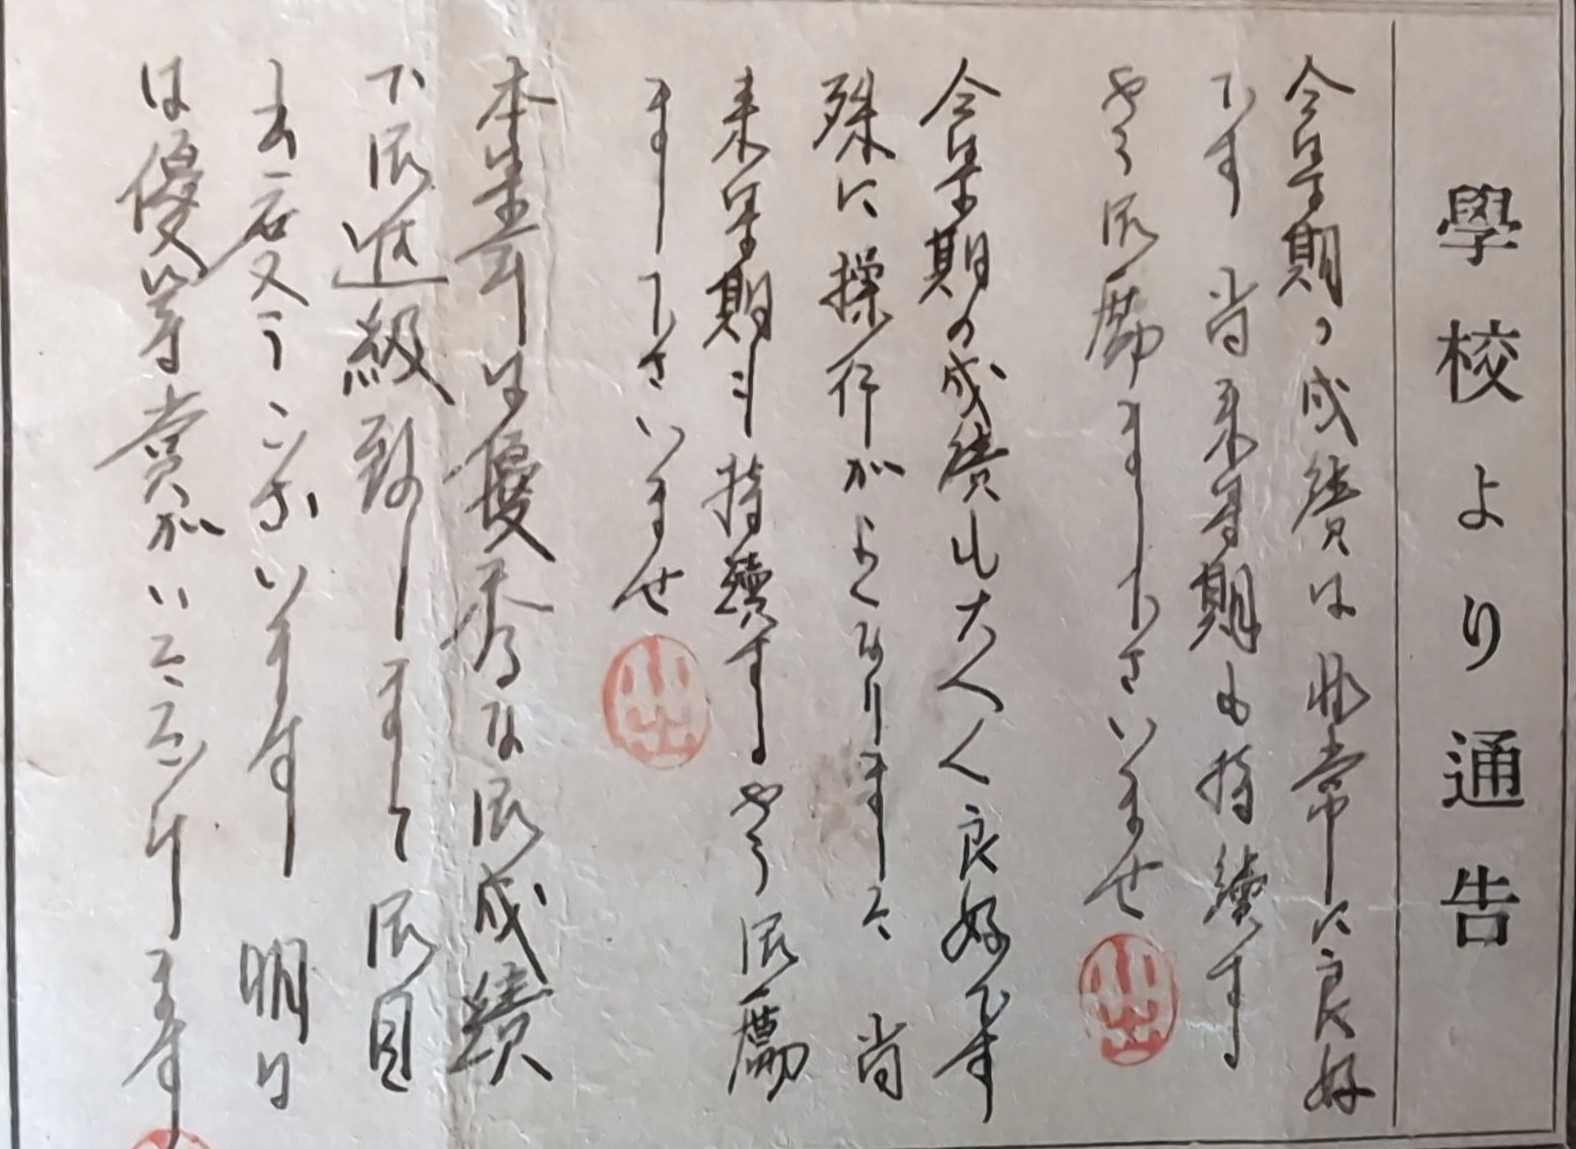 學校より通告
今学期の成績は非常に良好
です 尚来学期も持續する
やう御励まし下さいませ
今学期の成績も大へんよく良好です
殊に操行がよくなりました 尚
来学期も持續するやう御勵
まし下さいませ
本学年は優秀な御成績
で御進級致しまして御目
出度うございます 明日
は優等賞がいただけます